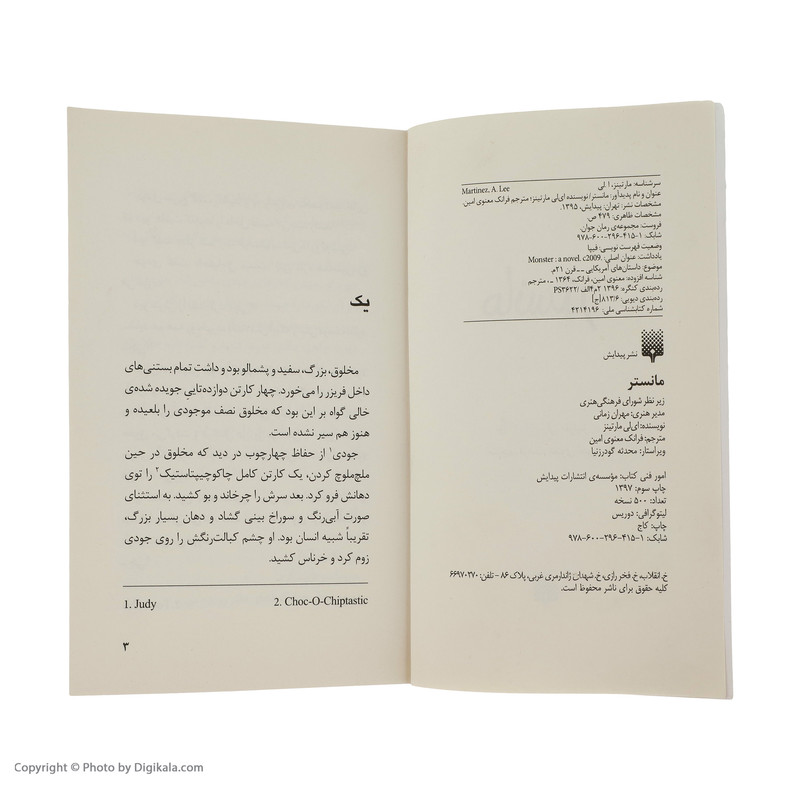 سرشناسه: مارتینز، ا. لی
Martinez, A. Lee
عنوان و نام پدیدآور: مانستر/ نویسنده ای‌لی مارتینز؛ مترجم فرانک معنوی امین.
مشخصات نشر: تهران: پیدایش، ۱۳۹۵.
مشخصات ظاهری: ۴۷۹ ص.
فروست: مجموعه‌ی رمان جوان.
شابک: ۱-۴۱۵-۲۹۶-۶۰۰-۹۷۸
وضعیت فهرست نویسی: فیپا
یادداشت: عنوان اصلی: Monster : a novel. c2009.
موضوع: داستان‌های آمریکایی -- قرن ۲۱م.
شناسه افزوده: معنوی امین، فرانک، ۱۳۶۴ -، مترجم
رده‌بندی کنگره: ۱۳۹۶ ۲م۴الف/ PS۳۶۲۲
رده‌بندی دیویی: ۸۱۳/۶[ج]
شماره کتابشناسی ملی: ۴۲۱۴۱۹۶
نشر پیدایش
مانستر
زیر نظر شورای فرهنگی‌هنری
مدیر هنری: مهران زمانی
نویسنده: ای‌لی مارتینز
مترجم: فرانک معنوی امین
ویراستار: محدثه گودرزنیا
امور فنی کتاب: مؤسسه‌ی انتشارات پیدایش
چاپ سوم: ۱۳۹۷
تعداد: ۵۰۰ نسخه
لیتوگرافی: دوریس
چاپ: کاج
شابک: ۱-۴۱۵-۲۹۶-۶۰۰-۹۷۸
خ. انقلاب، خ. فخر رازی، خ. شهدای ژاندارمری غربی، پلاک ۸۶ - تلفن: ۶۶۹۷۰۲۷۰
کلیه حقوق برای ناشر محفوظ است.
یک
مخلوق، بزرگ، سفید و پشمالو بود و داشت تمام بستنی‌های
داخل فریزر را می‌خورد. چهار کارتن دوازده‌تایی جویده شده‌ی
خالی گواه بر این بود که مخلوق نصف موجودی را بلعیده و
هنوز هم سیر نشده است.
جودی۱ از حفاظ چهارچوب در دید که مخلوق در حین
ملچ‌ملوچ کردن، یک کارتن کامل چاکوچیپتاستیک۲ را توی
دهانش فرو کرد. بعد سرش را چرخاند و بو کشید. به استثنای
صورت آبی‌رنگ و سوراخ بینی گشاد و دهان بسیار بزرگ،
تقریباً شبیه انسان بود. او چشم کبالت‌رنگش را روی جودی
زوم کرد و خرناس کشید.
1. Judy 2. Choc-O-Chiptastic
۳
Copyright © Photo by Digikala.com